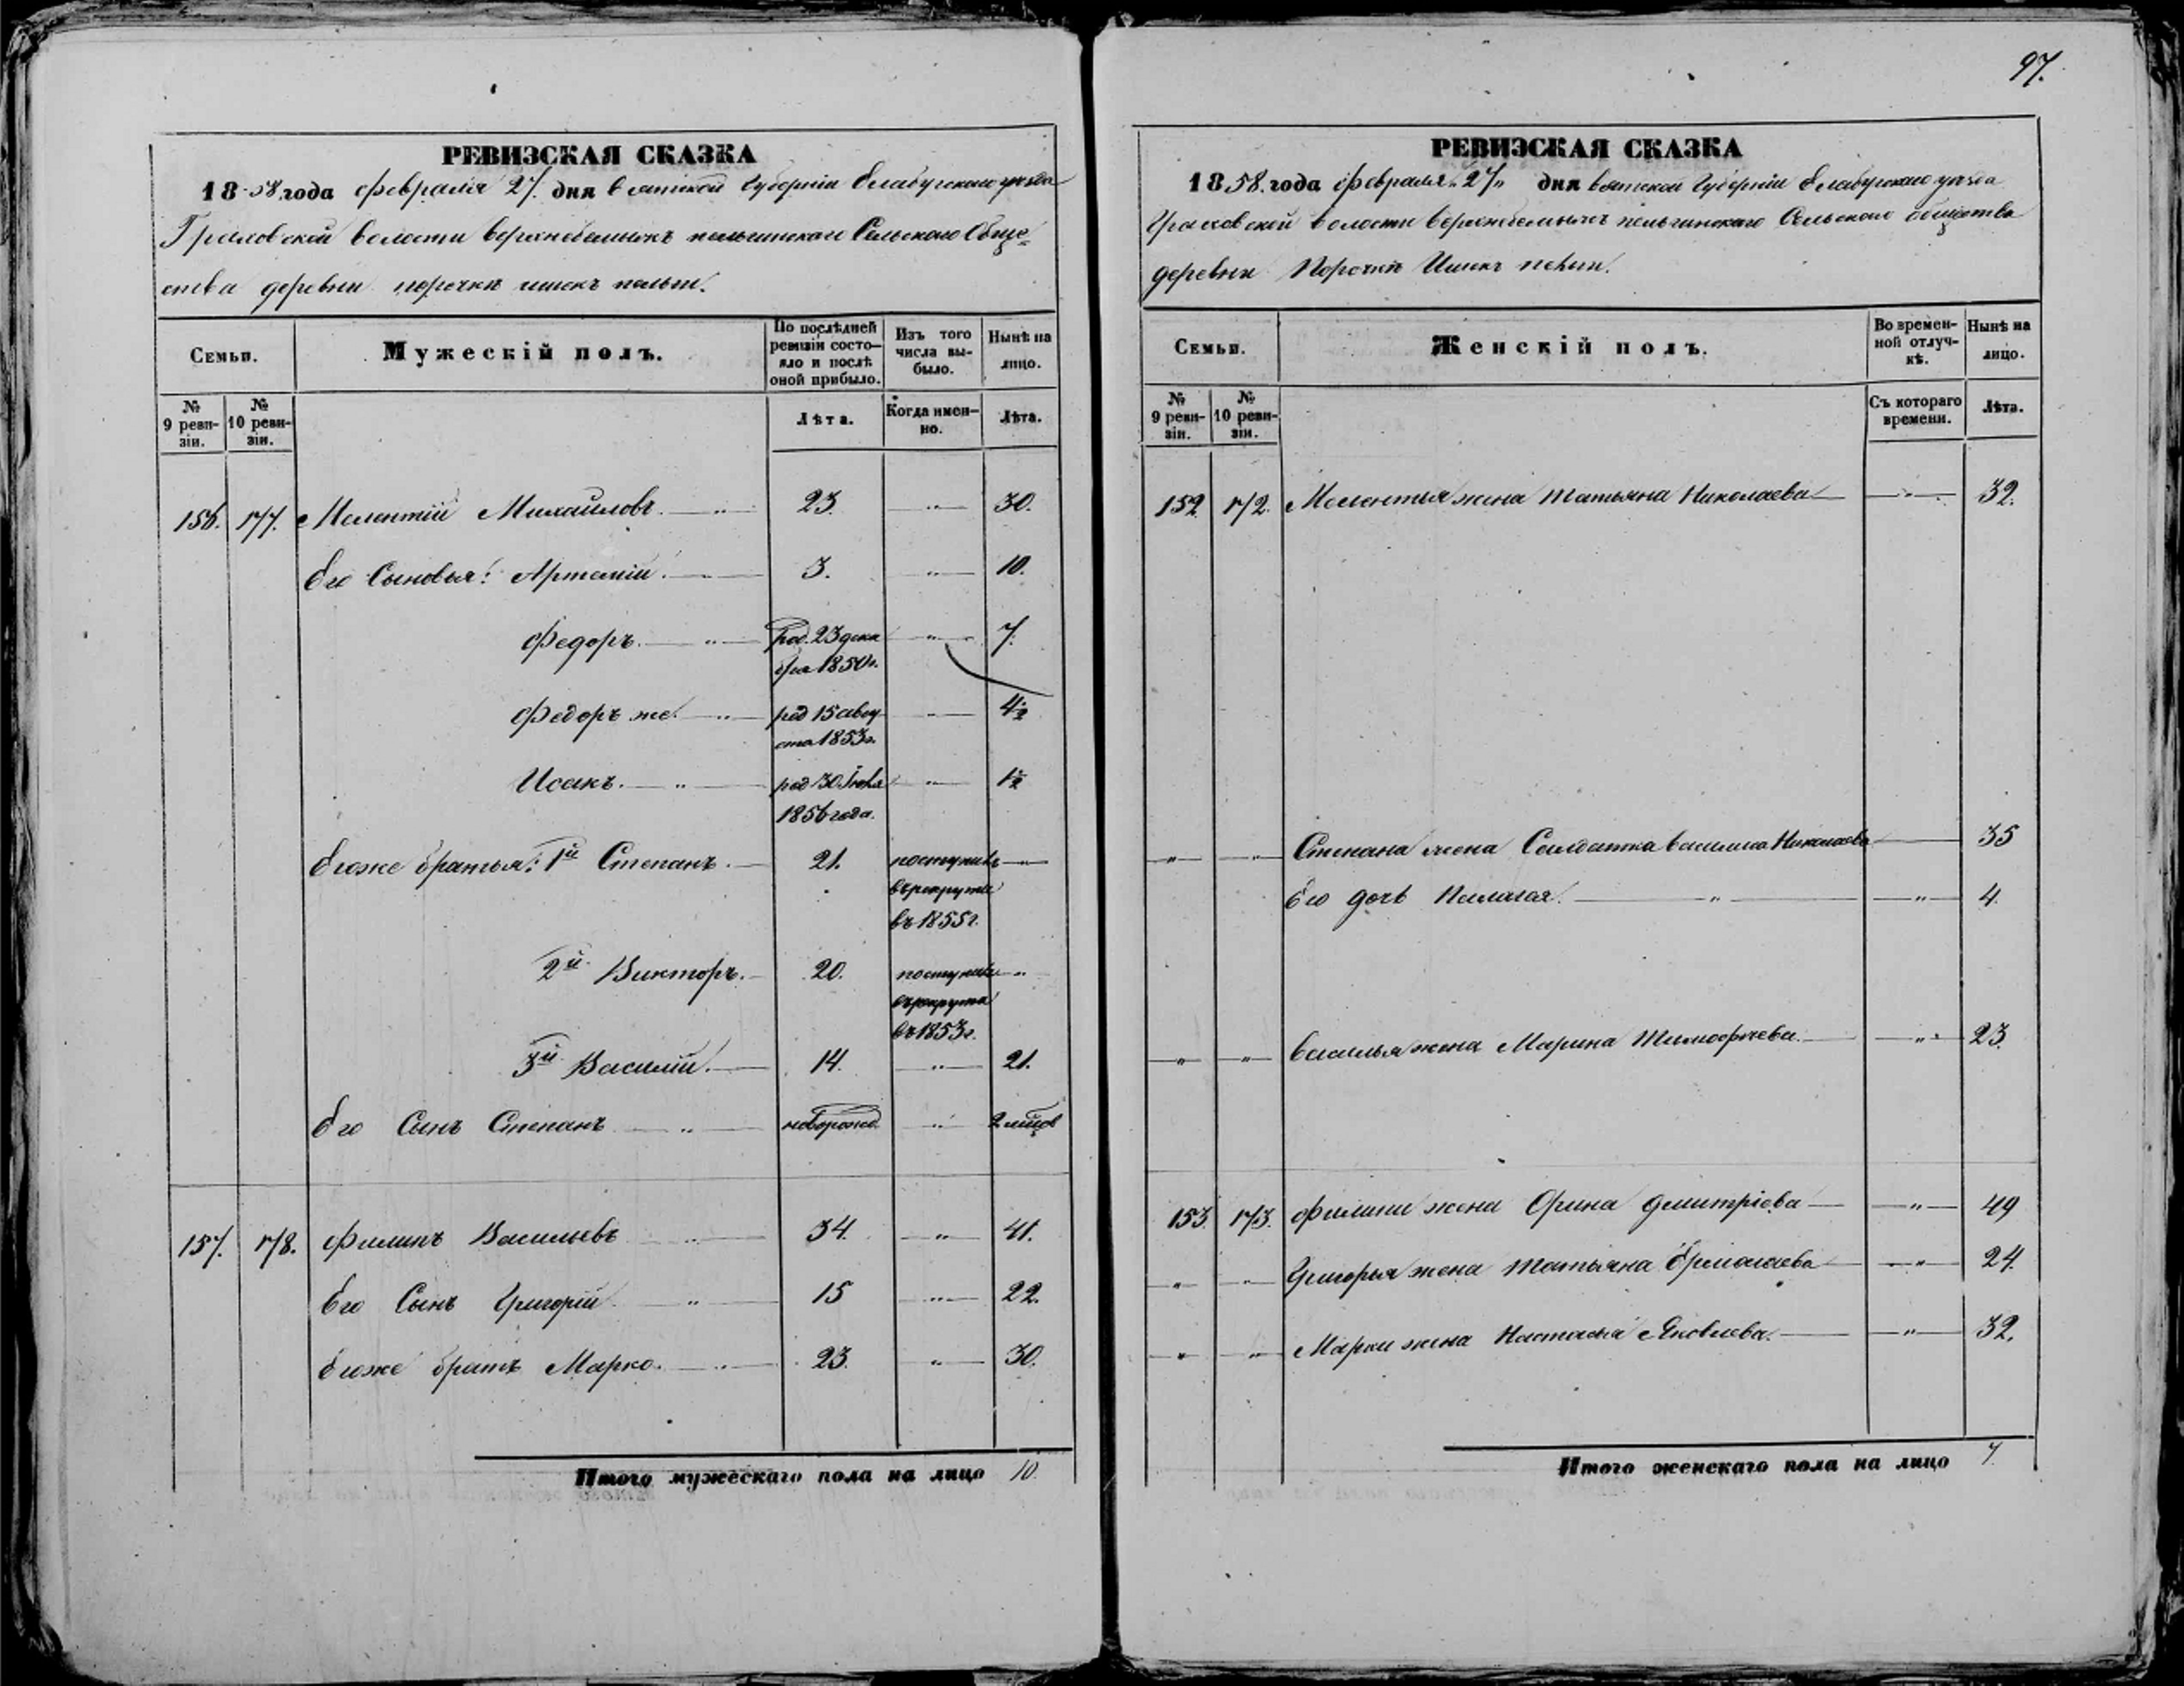 97.
РЕВИЗСКАЯ СКАЗКА
1858 года февраля 27. дня вятской Губерніи Елабужскаго уѣзда
Граховской волости Сельскаго Обще=
ства деревни порѣчки
Семьи. Мужескій полъ. По послѣдней ревизіи состояло и послѣ оной прибыло. Изъ того числа выбыло. Нынѣ на лицо.
№ 9 ревизіи. № 10 ревизіи. Лѣта. Когда именно. Лѣта.
156. 177. Мелентій Михайловъ. — „ — 23. „ — 30.
Его Сыновья: Артемій. — 3. „ — 10.
Федоръ. — „ — Род. 23 дека „ — 7.
бря 1850 г.
Федоръ же. — „ — род 15 авгу — 4½
ста 1853 г.
Исакъ. — „ — род 30 Іюля — „ — 1½
1856 года.
Егоже братья: 1й Степанъ. — 21. поступилъ — „
въ рекруты
въ 1855 г.
2й Викторъ. — 20. поступилъ — „
въ рекруты
въ 1853 г.
3й Василій. — 14. — „ — 21.
Его Сынъ Степанъ — „ — новорожд. „ 2 мѣсяц
157. 178. Филипъ Васильевъ — „ — 34. — „ — 41.
Его Сынъ Григорій. — „ — 15 — „ — 22.
Егоже братъ Марко. — „ — 23. „ — 30.
Итого мужескаго пола на лицо 10.
РЕВИЗСКАЯ СКАЗКА
1858. года февраля „27„ дня вятской Губерніи Елабужскаго уѣзда
Граховской волости Сельскаго общества
деревни Порѣчки
Семьи. Женскій полъ. Во временной отлучкѣ. Нынѣ на лицо.
№ 9 ревизіи. № 10 ревизіи. Съ котораго времени. Лѣта.
152. 172. Мелентья жена Татьяна Николаева — „ — 32.
„ — „ — Степана жена Солдатка Василиса Николаева — 35
Его дочь Пелагея. — „ — „ — 4.
„ — „ — Василья жена Марина Тимофѣева. — „ — 23.
153. 173. Филипа жена Орина Дмитріева — „ — 49
„ — „ — Григорья жена Татьяна Ермолаева — „ — 24.
„ — „ — Марки жена Настасья Яковлева. — „ — 32.
Итого женскаго пола на лицо 7.